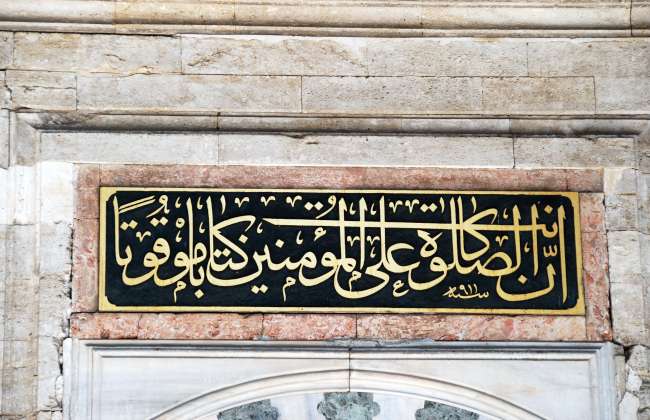 انّ الصلوة كانت على المؤمنين كتابا موقوتًا
سنه ٩١١